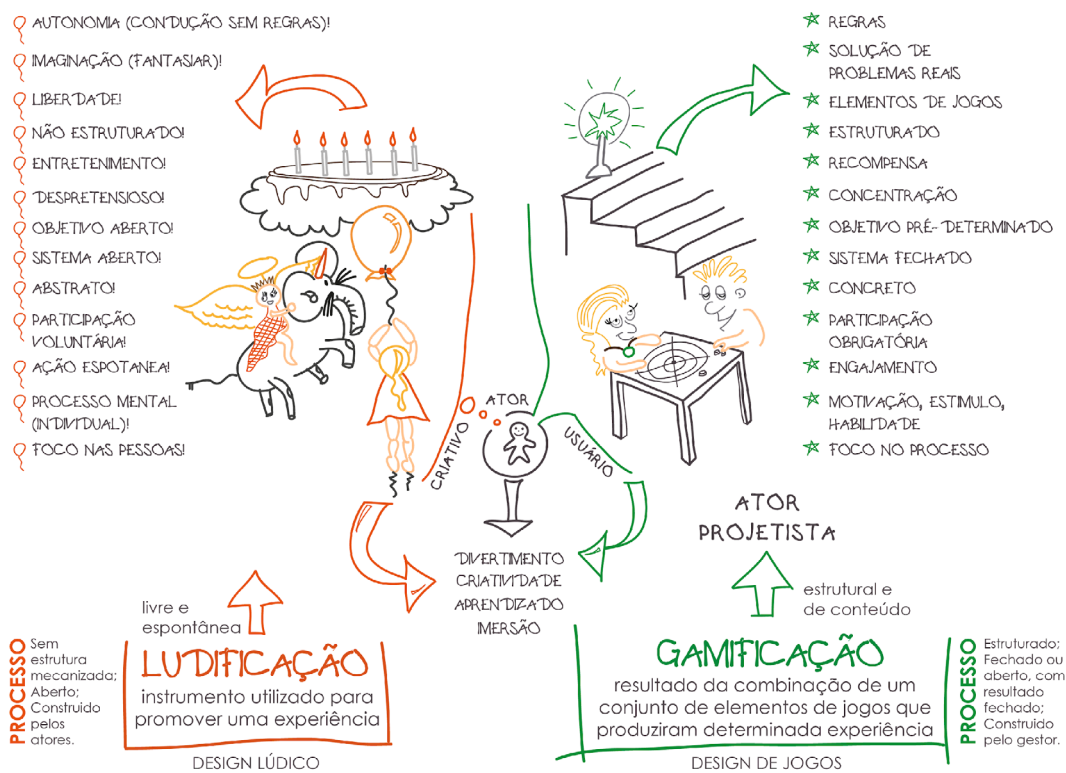 AUTONOMIA (CONDUÇÃO SEM REGRAS)!
IMAGINAÇÃO (FANTASIAR)!
LIBERDADE!
NÃO ESTRUTURADO!
ENTRETENIMENTO!
DESPRETENSIOSO!
OBJETIVO ABERTO!
SISTEMA ABERTO!
ABSTRATO!
PARTICIPAÇÃO
VOLUNTÁRIA!
AÇÃO ESPOTANEA!
PROCESSO MENTAL
(INDIVIDUAL)!
FOCO NAS PESSOAS!
REGRAS
SOLUÇÃO DE
PROBLEMAS REAIS
ELEMENTOS DE JOGOS
ESTRUTURADO
RECOMPENSA
CONCENTRAÇÃO
OBJETIVO PRÉ-DETERMINADO
SISTEMA FECHADO
CONCRETO
PARTICIPAÇÃO
OBRIGATÓRIA
ENGAJAMENTO
MOTIVAÇÃO, ESTIMULO,
HABILIDADE
FOCO NO PROCESSO
ATOR
CRIATIVO
USUÁRIO
DIVERTIMENTO
CRIATIVIDADE
APRENDIZADO
IMERSÃO
ATOR
PROJETISTA
livre e
espontânea
estrutural e
de conteúdo
PROCESSO
Sem
estrutura
mecanizada;
Aberto;
Construido
pelos
atores.
LUDIFICAÇÃO
instrumento utilizado para
promover uma experiência
DESIGN LÚDICO
GAMIFICAÇÃO
resultado da combinação de um
conjunto de elementos de jogos que
produziram determinada experiência
DESIGN DE JOGOS
PROCESSO
Estruturado;
Fechado ou
aberto, com
resultado
fechado;
Construido
pelo gestor.